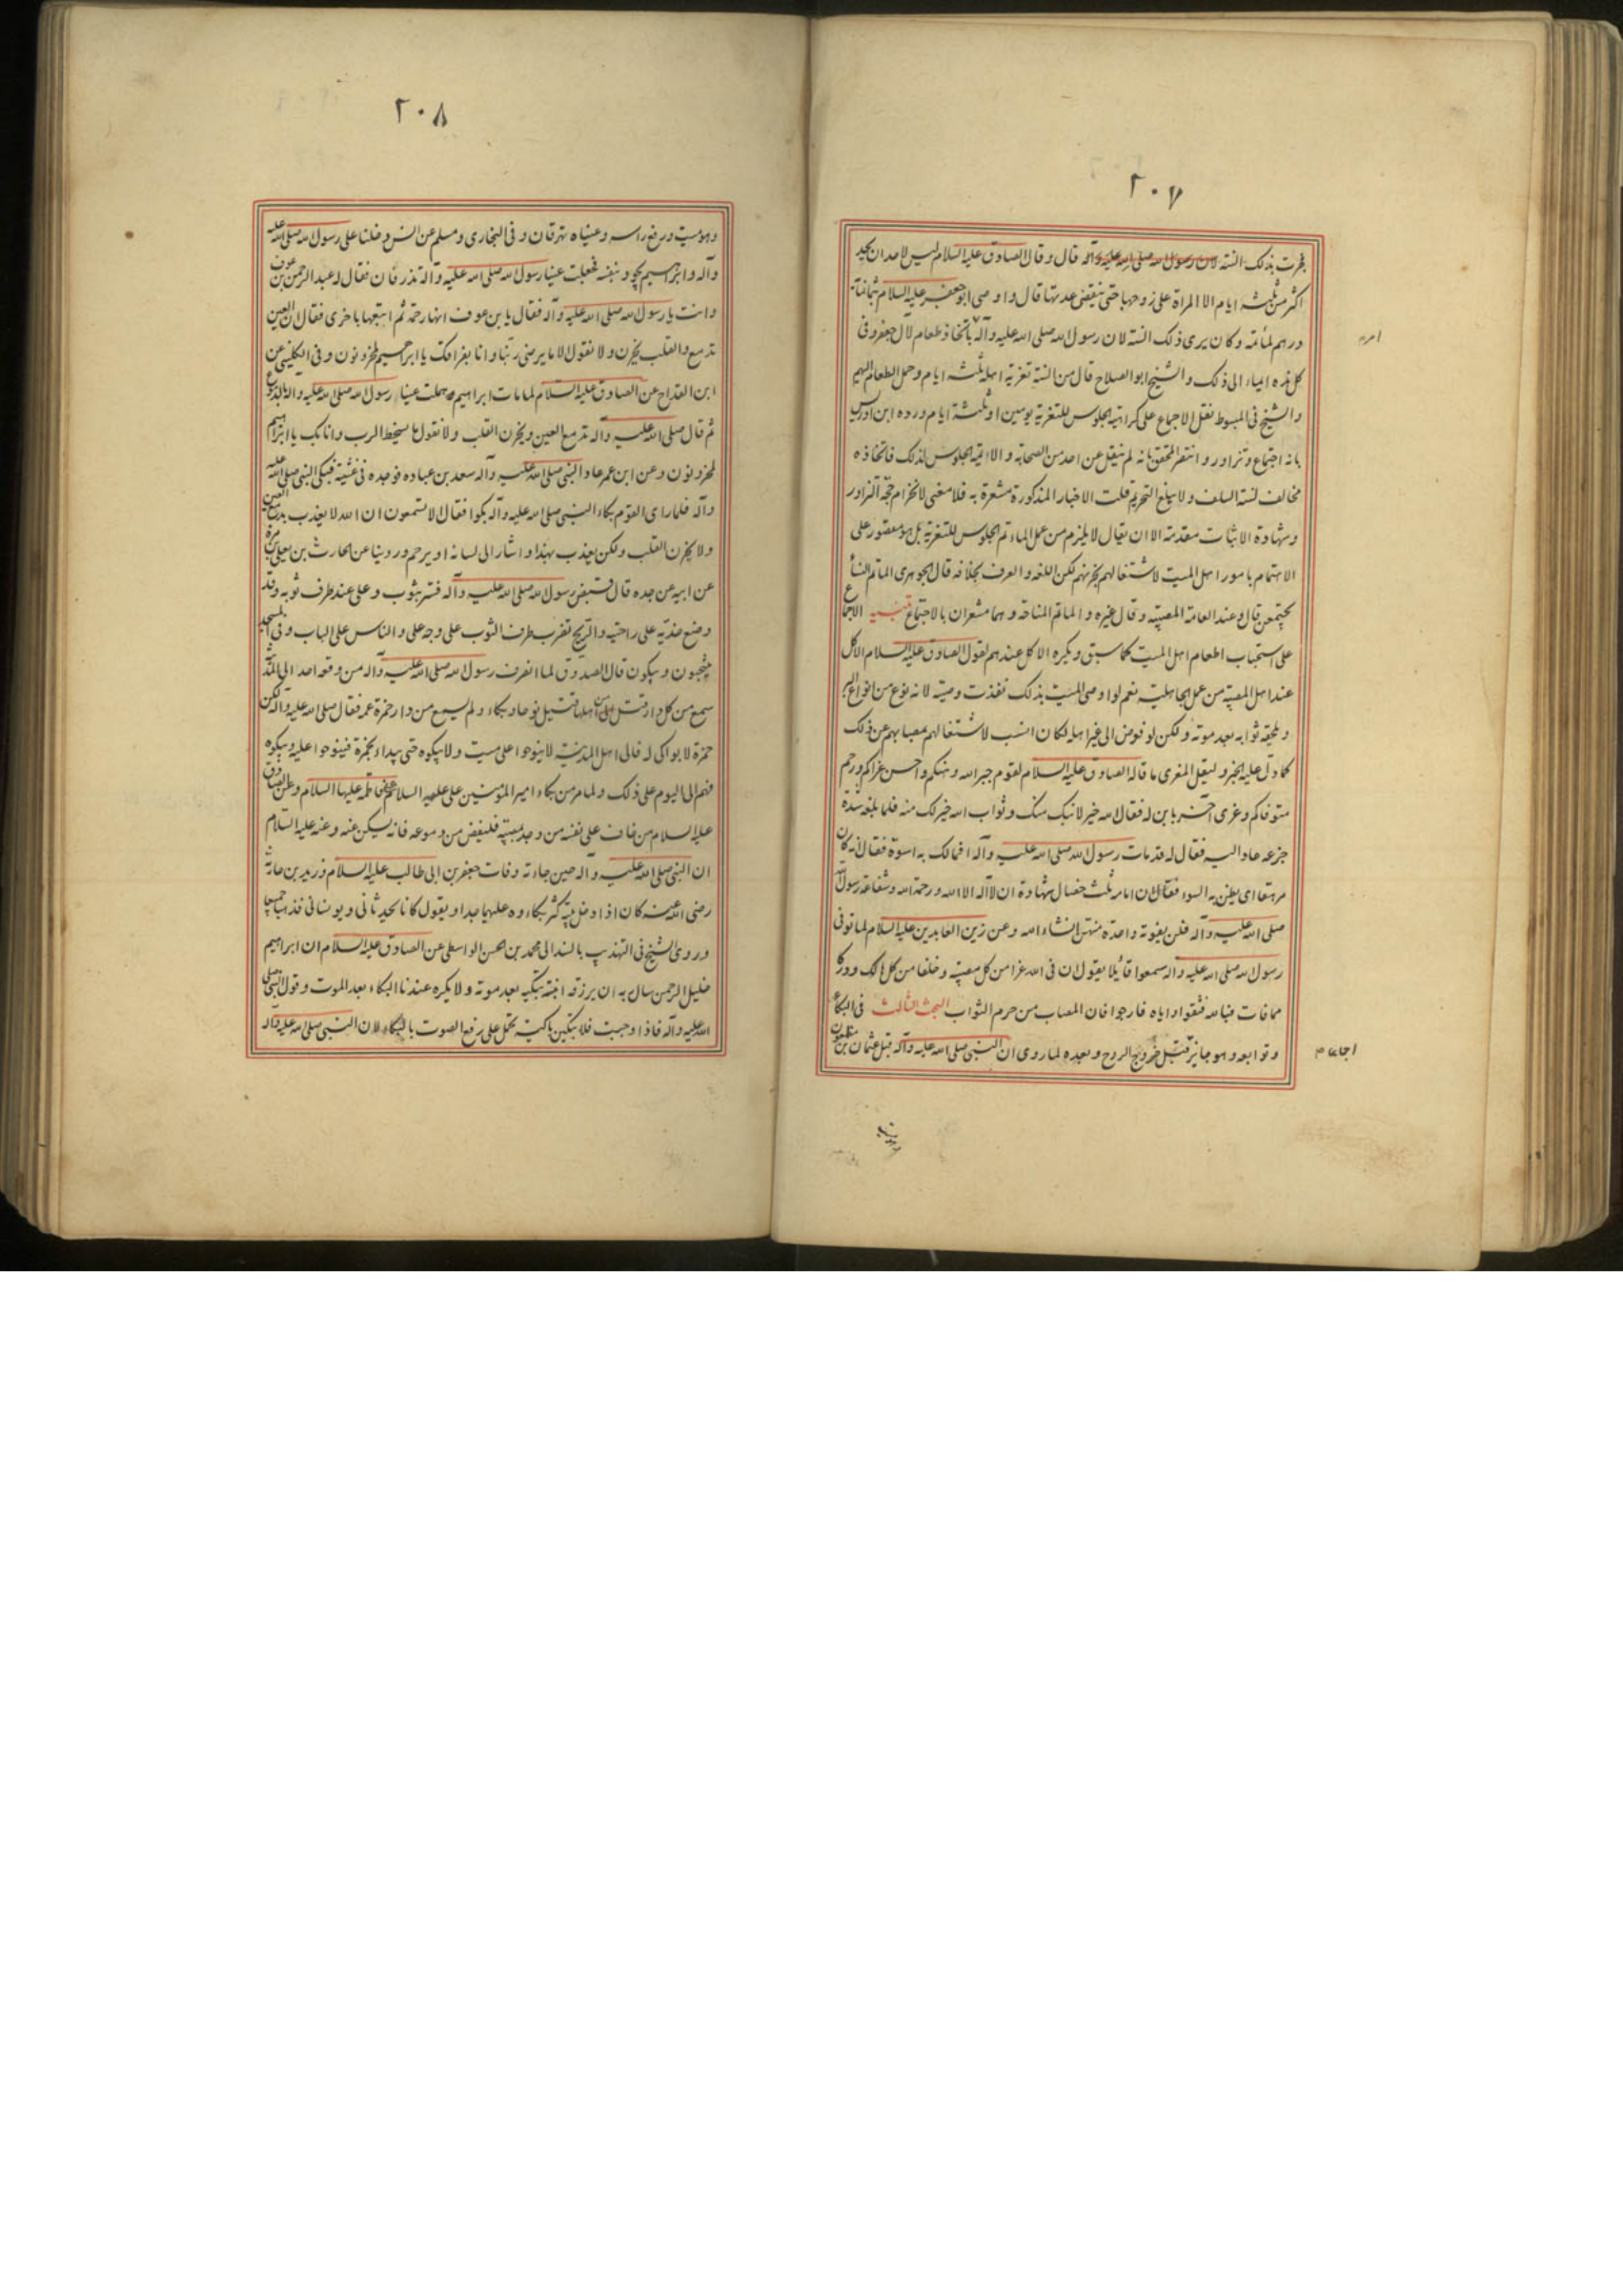 ٢٠٧
فجرت بذلك السنة لان رسول الله صلى الله عليه وآله قال وقال الصادق عليه السلام ليس لاحد ان يحد
اكثر من ثلثة ايام الا المراة على زوجها حتى تنقضى عدتها قال واوصى ابو جعفر عليه السلام بثمانمائة
درهم لمأتمه وكان يرى ذلك السنة لان رسول الله صلى الله عليه وآله باتخاذ طعام لآل جعفر وفى
امر
كل هذه ايماء الى ذلك والشيخ ابو الصلاح قال من السنة تعزية اهله ثلثة ايام وحمل الطعام اليهم
والشيخ فى المبسوط نقل الاجماع على كراهية الجلوس للتعزية يومين او ثلثة ايام ورده ابن ادريس
بانه اجتماع وتزاور وانتصر المحقق بانه لم ينقل عن احد من الصحابة والائمة الجلوس لذلك فاتخاذه
مخالف لسنة السلف ولا يبلغ التحريم قلت الاخبار المذكورة مشعرة به فلا معنى لانخرام حجة التزاور
وشهادة الاثبات مقدمة الا ان يقال لا يلزم من عمل الماتم الجلوس للتعزية بل هو مقصور على
الاهتمام بامور اهل الميت لاشتغالهم بحزنهم لكن اللغة والعرف بخلافه قال الجوهرى الماتم النسأ
يجتمعن قال وعند العامة المصيبة وقال غيره والماتم المناحة وهما مشعران بالاجتماع تنبيه الاجماع
على استحباب اطعام اهل الميت كما سبق ويكره الاكل عندهم لقول الصادق عليه السلام الاكل
عند اهل المصيبة من عمل الجاهلية نعم لو اوصى الميت بذلك نفذت وصيته لانه نوع من انواع البر
ويلحقه ثوابه بعد موته ولكن لو فوض الى غير اهله لكان انسب لاشتغالهم بمصابهم عن ذلك
كما دل عليه الخبر وليقل المعزى ما قاله الصادق عليه السلام لقوم جبر الله وهنكم واحسن عزاكم ورحم
متوفاكم وعزى آخر بابن له فقال الله خير لابنك منك وثواب الله خير لك منه فلما بلغه شدة
جزعه عاد اليه فقال له قد مات رسول الله صلى الله عليه وآله افما لك به اسوة فقال انه كان
مرهقا اى يظن به السوء فقال ان امامه ثلث خصال شهادة ان لا اله الا الله ورحمة الله وشفاعة رسول الله
صلى الله عليه وآله فلن يفوته واحدة منهن انشاء الله وعن زين العابدين عليه السلام لما توفى
رسول الله صلى الله عليه وآله سمعوا قائلا يقول ان فى الله عزا من كل مصيبة وخلفا من كل هالك ودركا
مما فات فبالله فثقوا واياه فارجوا فان المصاب من حرم الثواب البحث الثالث فى البكاء
وتوابعه وهو جايز قبل خروج الروح وبعده لما روى ان النبى صلى الله عليه وآله قبل عثمان بن مظعون
٢٠٨
وهو ميت ورفع راسه وعيناه تهرقان وفى البخارى ومسلم عن انس دخلنا على رسول الله صلى الله عليه
وآله وابراهيم يجود بنفسه فجعلت عينا رسول الله صلى الله عليه وآله تذرفان فقال له عبد الرحمن بن عوف
وانت يا رسول الله صلى الله عليه وآله فقال يا بن عوف انها رحمة ثم اتبعها باخرى فقال ان العين
تدمع والقلب يحزن ولا نقول الا ما يرضى ربنا وانا بفراقك يا ابراهيم لمحزونون وفى الكلينى عن
ابن القداح عن الصادق عليه السلام لما مات ابراهيم هملت عينا رسول الله صلى الله عليه وآله بالدموع
ثم قال صلى الله عليه وآله تدمع العين ويحزن القلب ولا نقول ما يسخط الرب وانا بك يا ابراهيم
لمحزونون وعن ابن عمر عاد النبى صلى الله عليه وآله سعد بن عباده فوجده فى غشية فبكى النبى صلى الله عليه
وآله فلما راى القوم بكاء النبى صلى الله عليه وآله بكوا فقال الا تسمعون ان الله لا يعذب بدمع العين
ولا يحزن القلب ولكن يعذب بهذا واشار الى لسانه او يرحم وروينا عن الحارث بن يعلى بن مرة
عن ابيه عن جده قال قبض رسول الله صلى الله عليه وآله فستر بثوب وعلى عند طرف ثوبه وقد
وضع خديه على راحتيه والريح تضرب طرف الثوب على وجه على والناس على الباب وفى المسجد
ينتحبون ويبكون قال الصدوق لما انصرف رسول الله صلى الله عليه وآله من وقعة احد الى المدينة
سمع من كل دار قتل من اهلها قتيل نوحا وبكاء ولم يسمع من دار حمزة عمه فقال صلى الله عليه وآله لكن
حمزة لا بواكى له فآلى اهل المدينة لا ينوحوا على ميت ولا يبكوه حتى يبداء بحمزة فينوحوا عليه ويبكوه
فهم الى اليوم على ذلك ولما مر من بكاء امير المؤمنين على عليه السلام على فاطمة عليها السلام وعن الصادق
عليه السلام من خاف على نفسه من وجد بمصيبة فليفض من دموعه فانه يسكن عنه وعنه عليه السلام
ان النبى صلى الله عليه وآله حين جاءته وفات جعفر بن ابى طالب عليه السلام وزيد بن حارثة
رضى الله عنه كان اذا دخل بيته كثر بكاءوه عليهما جدا ويقول كانا يحدثانى ويونسانى فذهبا جميعا
وروى الشيخ فى التهذيب بالسند الى محمد بن الحسن الواسطى عن الصادق عليه السلام ان ابراهيم
خليل الرحمن سال ربه ان يرزقه ابنة تبكيه بعد موته ولا يكره عندنا البكاء بعد الموت وقول النبى صلى
الله عليه وآله فاذا وجبت فلا تبكين باكية يحمل على رفع الصوت بالبكاء لان النبى صلى الله عليه وآله